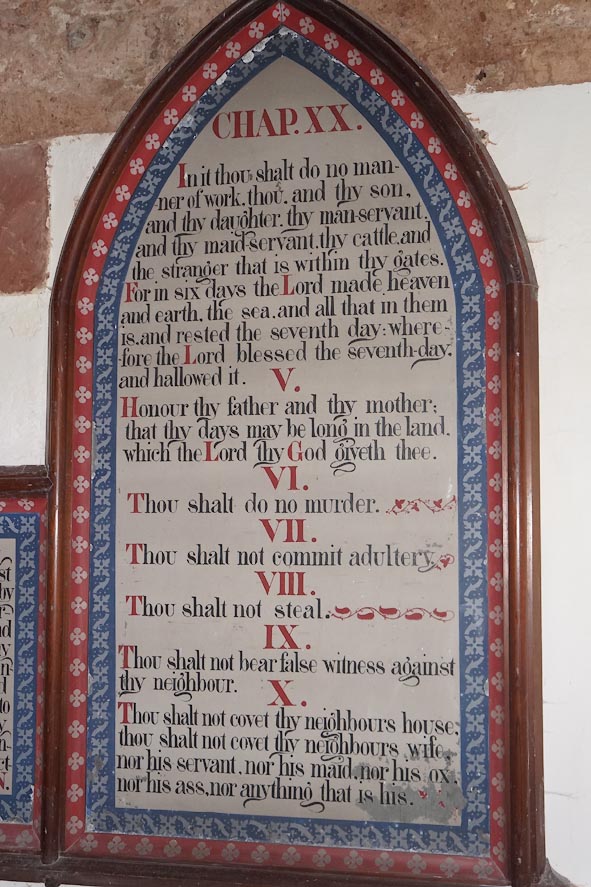 CHAP. XX.
In it thou shalt do no man-
ner of work, thou, and thy son,
and thy daughter, thy man-servant,
and thy maid-servant, thy cattle, and
the stranger that is within thy gates.
For in six days the Lord made heaven
and earth, the sea, and all that in them
is, and rested the seventh day: where-
fore the Lord blessed the seventh-day,
and hallowed it.
V.
Honour thy father and thy mother;
that thy days may be long in the land,
which the Lord thy God giveth thee.
VI.
Thou shalt do no murder.
VII.
Thou shalt not commit adultery.
VIII.
Thou shalt not steal.
IX.
Thou shalt not bear false witness against
thy neighbour.
X.
Thou shalt not covet thy neighbours house,
thou shalt not covet thy neighbours wife,
nor his servant, nor his maid, nor his ox,
nor his ass, nor anything that is his.